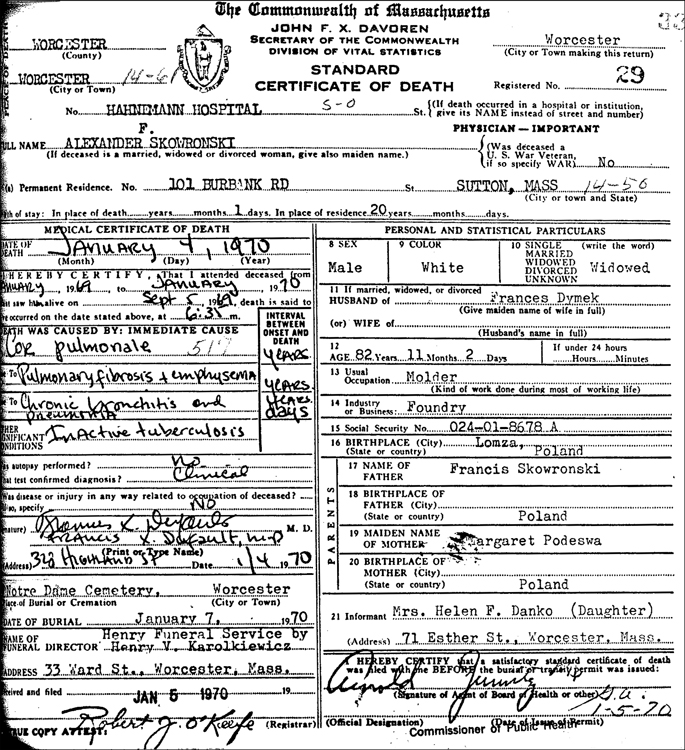 The Commonwealth of Massachusetts
JOHN F. X. DAVOREN
SECRETARY OF THE COMMONWEALTH
DIVISION OF VITAL STATISTICS
STANDARD
CERTIFICATE OF DEATH
WORCESTER
(County)
WORCESTER 14-61
(City or Town)
Worcester
(City or Town making this return)
Registered No. 29
No. HAHNEMANN HOSPITAL S-O St. {(If death occurred in a hospital or institution, give its NAME instead of street and number)
F.
ULL NAME ALEXANDER SKOWRONSKI
(If deceased is a married, widowed or divorced woman, give also maiden name.)
PHYSICIAN — IMPORTANT
(Was deceased a
U. S. War Veteran,
if so specify WAR) No
(a) Permanent Residence. No. 101 BURBANK RD St SUTTON, MASS 14-56
(City or town and State)
of stay: In place of death years months 1 days. In place of residence 20 years months days.
MEDICAL CERTIFICATE OF DEATH
DATE OF DEATH January 4, 1970
(Month) (Day) (Year)
I HEREBY CERTIFY, That I attended deceased from
January 1969 to January 1970
saw him alive on Sept 5, 1969, death is said to
have occurred on the date stated above, at 6:35 m.
INTERVAL BETWEEN ONSET AND DEATH
DEATH WAS CAUSED BY: IMMEDIATE CAUSE
Cor pulmonale 517 years
TO Pulmonary fibrosis + emphysema years
TO Chronic bronchitis and pneumonia years days
OTHER SIGNIFICANT CONDITIONS Inactive tuberculosis
Was autopsy performed? No
What test confirmed diagnosis? Clinical
Was disease or injury in any way related to occupation of deceased?
so, specify No
M. D.
(Print or Type Name)
(Address) 323 Highland St Date 1/4 1970
Notre Dame Cemetery, Worcester
Place of Burial or Cremation (City or Town)
DATE OF BURIAL January 7, 1970
NAME OF FUNERAL DIRECTOR Henry Funeral Service by Henry V. Karolkiewicz
ADDRESS 33 Ward St., Worcester, Mass.
Received and filed JAN 5 1970 19
Robert J. O'Keefe
TRUE COPY ATTEST: (Registrar)
PERSONAL AND STATISTICAL PARTICULARS
8 SEX Male
9 COLOR White
10 SINGLE MARRIED WIDOWED DIVORCED UNKNOWN (write the word) Widowed
11 If married, widowed, or divorced
HUSBAND of Frances Dymek
(Give maiden name of wife in full)
(or) WIFE of
(Husband's name in full)
12 AGE 82 Years 11 Months 2 Days
If under 24 hours
Hours Minutes
13 Usual Occupation Molder
(Kind of work done during most of working life)
14 Industry or Business: Foundry
15 Social Security No. 024-01-8678 A
16 BIRTHPLACE (City) Lomza,
(State or country) Poland
PARENTS
17 NAME OF FATHER Francis Skowronski
18 BIRTHPLACE OF FATHER (City)
(State or country) Poland
19 MAIDEN NAME OF MOTHER Margaret Podeswa
20 BIRTHPLACE OF MOTHER (City)
(State or country) Poland
21 Informant Mrs. Helen F. Danko (Daughter)
(Address) 71 Esther St., Worcester, Mass.
I HEREBY CERTIFY that a satisfactory standard certificate of death
was filed with me BEFORE the burial or transit permit was issued:
Arnold
(Signature of Agent of Board of Health or other)
1-5-70
(Official Designation) (Date of Issue of Permit)
Commissioner of Public Health